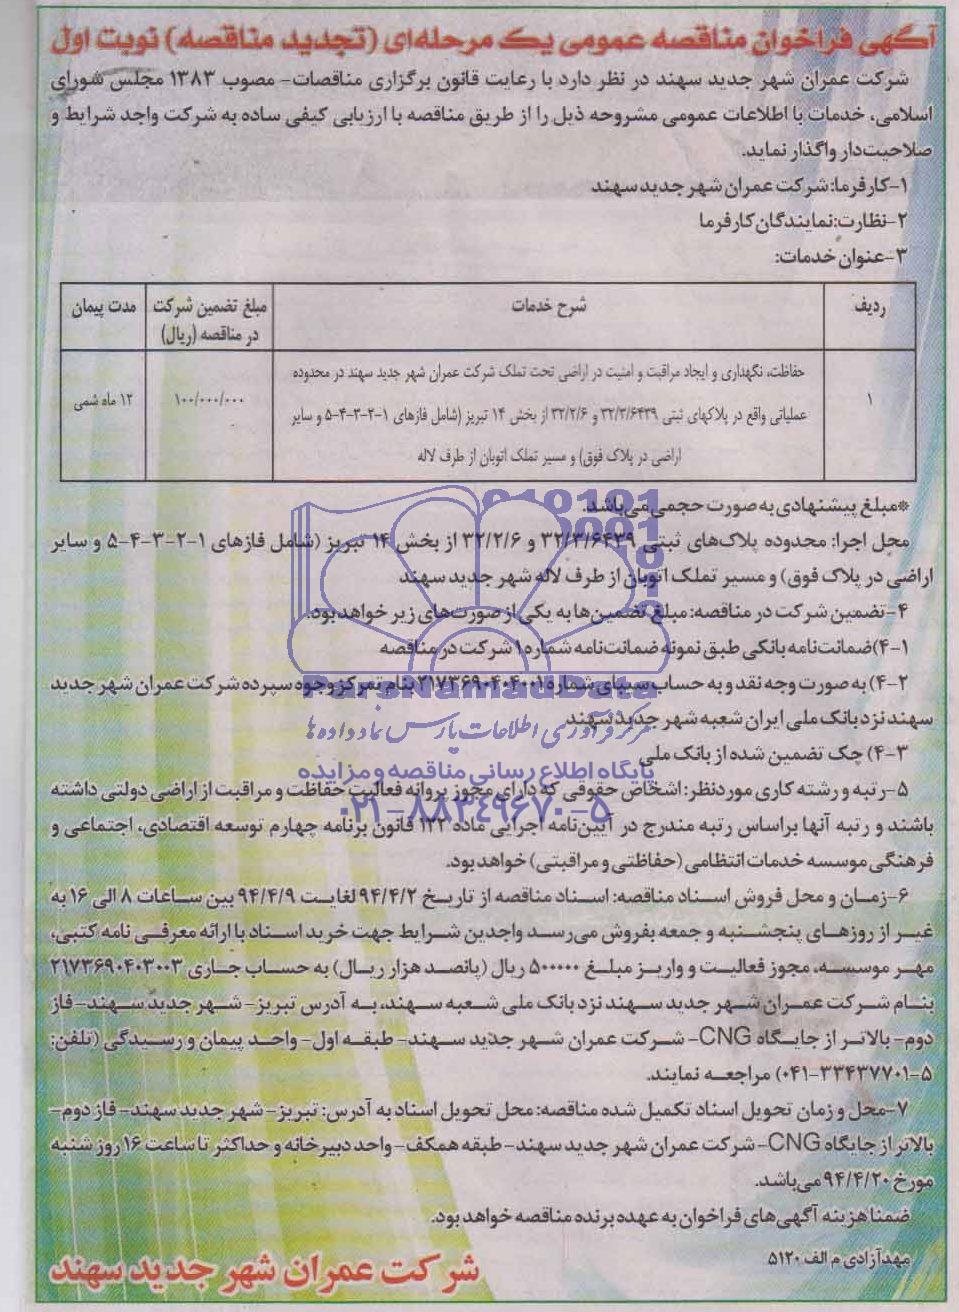 آگهی فراخوان مناقصه عمومی یک مرحله‌ای (تجدید مناقصه) نوبت اول
شرکت عمران شهر جدید سهند در نظر دارد با رعایت قانون برگزاری مناقصات- مصوب ۱۳۸۳ مجلس شورای
اسلامی، خدمات با اطلاعات عمومی مشروحه ذیل را از طریق مناقصه با ارزیابی کیفی ساده به شرکت واجد شرایط و
صلاحیت‌دار واگذار نماید.
۱-کارفرما: شرکت عمران شهر جدید سهند
۲-نظارت: نمایندگان کارفرما
۳-عنوان خدمات:
ردیف شرح خدمات مبلغ تضمین شرکت مدت پیمان
در مناقصه (ریال)
حفاظت، نگهداری و ایجاد مراقبت و امنیت در اراضی تحت تملک شرکت عمران شهر جدید سهند در محدوده
۱ عملیاتی واقع در پلاکهای ثبتی ۳۲/۳/۶۴۳۹ و ۳۲/۲/۶ از بخش ۱۴ تبریز (شامل فازهای ۱-۲-۳-۴-۵ و سایر ۱۰۰/۰۰۰/۰۰۰ ۱۲ ماه شمی
اراضی در پلاک فوق) و مسیر تملک اتوبان از طرف لاله
*مبلغ پیشنهادی به صورت حجمی می‌باشد.
محل اجرا: محدوده پلاک‌های ثبتی ۳۲/۳/۶۴۳۹ و ۳۲/۲/۶ از بخش ۱۴ تبریز (شامل فازهای ۱-۲-۳-۴-۵ و سایر
اراضی در پلاک فوق) و مسیر تملک اتوبان از طرف لاله شهر جدید سهند
۴-تضمین شرکت در مناقصه: مبلغ تضمین‌ها به یکی از صورت‌های زیر خواهد بود.
۴-۱)ضمانت‌نامه بانکی طبق نمونه ضمانت‌نامه شماره ۱ شرکت در مناقصه
۴-۲) به صورت وجه نقد و به حساب سیبای شماره ۲۱۷۳۶۹۰۴۰۴۰۰۱ بنام تمرکز وجوه سپرده شرکت عمران شهر جدید
سهند نزد بانک ملی ایران شعبه شهر جدید سهند
۴-۳) چک تضمین شده از بانک ملی
ParsNamadData
مرکز فرآوری اطلاعات پارس نماد داده ها
پایگاه اطلاع رسانی مناقصه و مزایده
۰۲۱-۸۸۳۴۹۶۷۰-۵
۵-رتبه و رشته کاری موردنظر: اشخاص حقوقی که دارای مجوز پروانه فعالیت حفاظت و مراقبت از اراضی دولتی داشته
باشند و رتبه آنها براساس رتبه مندرج در آیین‌نامه اجرایی ماده ۱۲۲ قانون برنامه چهارم توسعه اقتصادی، اجتماعی و
فرهنگی موسسه خدمات انتظامی (حفاظتی و مراقبتی) خواهد بود.
۶-زمان و محل فروش اسناد مناقصه: اسناد مناقصه از تاریخ ۹۴/۴/۲ لغایت ۹۴/۴/۹ بین ساعات ۸ الی ۱۶ به
غیر از روزهای پنجشنبه و جمعه بفروش می‌رسد واجدین شرایط جهت خرید اسناد با ارائه معرفی نامه کتبی،
مهر موسسه، مجوز فعالیت و واریز مبلغ ۵۰۰۰۰۰ ریال (پانصد هزار ریال) به حساب جاری ۲۱۷۳۶۹۰۴۰۳۰۰۳
بنام شرکت عمران شهر جدید سهند نزد بانک ملی شعبه سهند، به آدرس تبریز- شهر جدید سهند- فاز
دوم- بالاتر از جایگاه CNG- شرکت عمران شهر جدید سهند- طبقه اول- واحد پیمان و رسیدگی (تلفن:
۵-۰۴۱-۳۳۴۳۷۷۰۱) مراجعه نمایند.
۷-محل و زمان تحویل اسناد تکمیل شده مناقصه: محل تحویل اسناد به آدرس: تبریز- شهر جدید سهند- فاز دوم-
بالاتر از جایگاه CNG- شرکت عمران شهر جدید سهند- طبقه همکف- واحد دبیرخانه و حداکثر تا ساعت ۱۶ روز شنبه
مورخ ۹۴/۴/۲۰ می‌باشد.
ضمنا هزینه آگهی‌های فراخوان به عهده برنده مناقصه خواهد بود.
مهد آزادی م الف ۵۱۲۰
شرکت عمران شهر جدید سهند